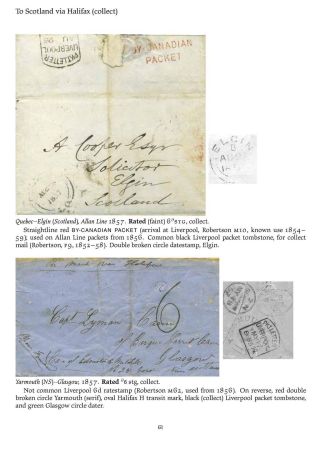 To Scotland via Halifax (collect)
PKT.LETTER
LIVERPOOL
BY CANADIAN
PACKET
A Cooper Esqr
Solicitor
Elgin
Scotland
ELGIN
Quebec–Elgin (Scotland), Allan Line 1857. Rated (faint) 6d STG, collect.
Straightline red BY·CANADIAN PACKET (arrival at Liverpool, Robertson M10, known use 1854–
59); used on Allan Line packets from 1856. Common black Liverpool packet tombstone, for collect
mail (Robertson, P9, 1852–58). Double broken circle datestamp, Elgin.
6
Capt Lyman Cann
Glasgow
Yarmouth (NS)–Glasgow, 1857. Rated 6 stg, collect.
Not common Liverpool 6d ratestamp (Robertson MG2, used from 1856). On reverse, red double
broken circle Yarmouth (serif), oval Halifax H transit mark, black (collect) Liverpool packet tombstone,
and green Glasgow circle dater.